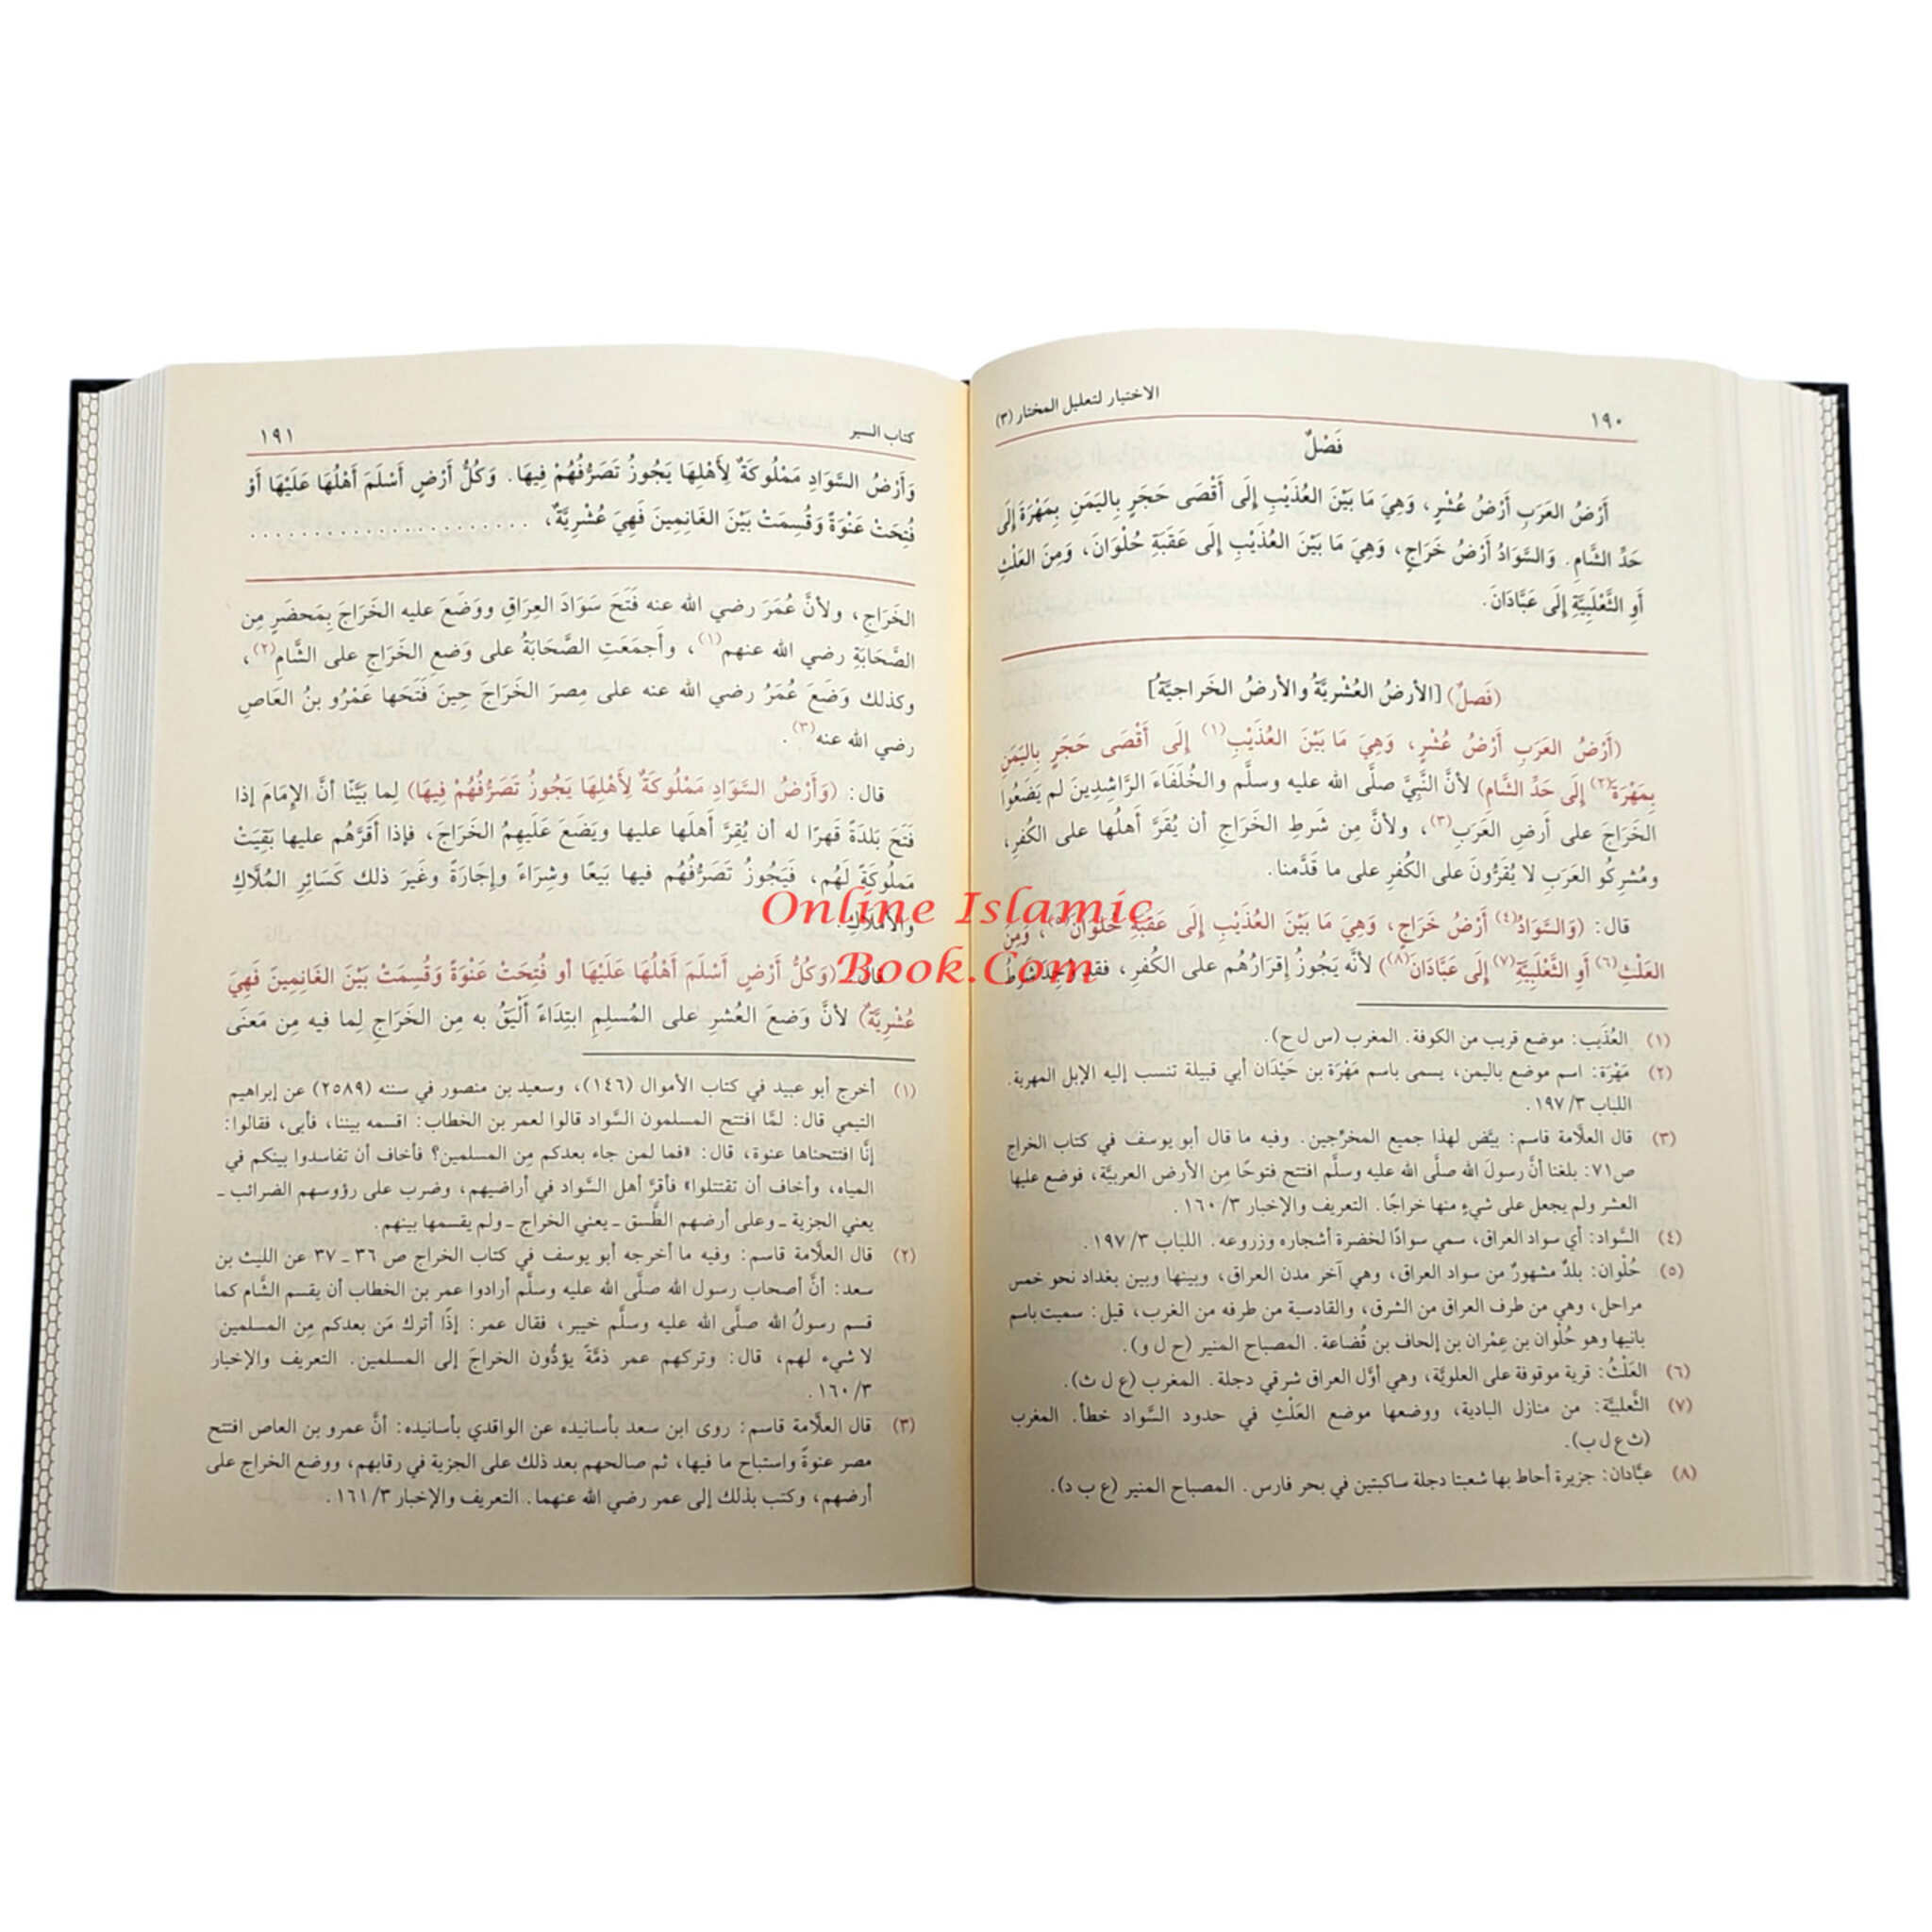 ١٩٠
الاختيار لتعليل المختار (٣)
فَصْلٌ
أَرْضُ العَرَبِ أَرْضُ عُشْرٍ، وَهِيَ مَا بَيْنَ العُذَيْبِ إِلَى أَقْصَى حَجَرٍ بِاليَمَنِ بِمَهْرَةَ إِلَى
حَدِّ الشَّامِ. وَالسَّوَادُ أَرْضُ خَرَاجٍ، وَهِيَ مَا بَيْنَ العُذَيْبِ إِلَى عَقَبَةِ حُلْوَانَ، وَمِنَ العَلْثِ
أَوِ الثَّعْلَبِيَّةِ إِلَى عَبَّادَانَ.
(فَصلٌ) [الأرضُ العُشْرِيَّةُ والأرضُ الخَراجيَّةُ]
(أَرْضُ العَرَبِ أَرْضُ عُشْرٍ، وَهِيَ مَا بَيْنَ العُذَيْبِ(١) إِلَى أَقْصَى حَجَرٍ بِاليَمَنِ
بِمَهْرَةَ(٢) إِلَى حَدِّ الشَّامِ) لأنَّ النَّبِيَّ صلَّى الله عليه وسلَّم والخُلَفَاءَ الرَّاشِدِينَ لم يَضَعُوا
الخَرَاجَ على أَرضِ العَرَبِ(٣)، ولأنَّ مِن شَرطِ الخَرَاجِ أن يُقَرَّ أَهلُها على الكُفرِ،
ومُشرِكُو العَرَبِ لا يُقَرُّونَ على الكُفرِ على ما قَدَّمنا.
قال: (وَالسَّوَادُ(٤) أَرْضُ خَرَاجٍ، وَهِيَ مَا بَيْنَ العُذَيْبِ إِلَى عَقَبَةِ حُلْوَانَ(٥)، وَمِنَ
العَلْثِ(٦) أَوِ الثَّعْلَبِيَّةِ(٧) إِلَى عَبَّادَانَ(٨)) لأنَّه يَجُوزُ إقرَارُهُم على الكُفرِ، فقد وُجِدَ شَرطُ
(١) العُذَيب: موضع قريب من الكوفة. المغرب (س ل ح).
(٢) مَهْرَة: اسم موضع باليمن، يسمى باسم مَهْرَة بن حَيْدَان أبي قبيلة تنسب إليه الإبل المهرية.
اللباب ٣/ ١٩٧.
(٣) قال العلَّامة قاسم: بيَّض لهذا جميع المخرِّجين. وفيه ما قال أبو يوسف في كتاب الخراج
ص٧١: بلغنا أنَّ رسولَ الله صلَّى الله عليه وسلَّم افتتح فتوحًا مِن الأرض العربيَّة، فوضع عليها
العشر ولم يجعل على شيءٍ منها خراجًا. التعريف والإخبار ٣/ ١٦٠.
(٤) السَّواد: أي سواد العراق، سمي سوادًا لخضرة أشجاره وزروعه. اللباب ٣/ ١٩٧.
(٥) حُلْوان: بلدٌ مشهورٌ من سواد العراق، وهي آخر مدن العراق، وبينها وبين بغداد نحو خمس
مراحل، وهي من طرف العراق من الشرق، والقادسية من طرفه من الغرب، قيل: سميت باسم
بانيها وهو حُلْوان بن عِمْران بن إلحاف بن قُضاعة. المصباح المنير (ح ل و).
(٦) العَلْثُ: قرية موقوفة على العلويَّة، وهي أوَّل العراق شرقي دجلة. المغرب (ع ل ث).
(٧) الثَّعلبيَّة: من منازل البادية، ووضعها موضع العَلْثِ في حدود السَّواد خطأ. المغرب
(ث ع ل ب).
(٨) عبَّادان: جزيرة أحاط بها شعبتا دجلة ساكبتين في بحر فارس. المصباح المنير (ع ب د).
كتاب السير
١٩١
وَأَرْضُ السَّوَادِ مَمْلُوكَةٌ لِأَهْلِهَا يَجُوزُ تَصَرُّفُهُمْ فِيهَا. وَكُلُّ أَرْضٍ أَسْلَمَ أَهْلُهَا عَلَيْهَا أَوْ
فُتِحَتْ عَنْوَةً وَقُسِمَتْ بَيْنَ الغَانِمِينَ فَهِيَ عُشْرِيَّةٌ، ......................
الخَرَاجِ، ولأنَّ عُمَرَ رضي الله عنه فَتَحَ سَوَادَ العِرَاقِ ووَضَعَ عليه الخَرَاجَ بِمَحضَرٍ مِن
الصَّحَابَةِ رضي الله عنهم(١)، وأَجمَعَتِ الصَّحَابَةُ على وَضعِ الخَرَاجِ على الشَّامِ(٢)،
وكذلك وَضَعَ عُمَرُ رضي الله عنه على مِصرَ الخَرَاجَ حِينَ فَتَحَها عَمْرُو بنُ العَاصِ
رضي الله عنه(٣).
قال: (وَأَرْضُ السَّوَادِ مَمْلُوكَةٌ لِأَهْلِهَا يَجُوزُ تَصَرُّفُهُمْ فِيهَا) لِما بَيَّنَّا أنَّ الإمَامَ إذا
فَتَحَ بَلدَةً قَهرًا له أن يُقِرَّ أَهلَها عليها ويَضَعَ عَلَيهِمُ الخَرَاجَ، فإذا أَقَرَّهُم عليها بَقِيَتْ
مَملُوكَةً لَهُم، فَيَجُوزُ تَصَرُّفُهُم فيها بَيعًا وشِرَاءً وإجَارَةً وغَيرَ ذلك كَسَائِرِ المُلَّاكِ
والأَملَاكِ.
قال: (وَكُلُّ أَرْضٍ أَسْلَمَ أَهْلُهَا عَلَيْهَا أو فُتِحَتْ عَنْوَةً وَقُسِمَتْ بَيْنَ الغَانِمِينَ فَهِيَ
عُشْرِيَّةٌ) لأنَّ وَضعَ العُشرِ على المُسلِمِ ابتِدَاءً أَلْيَقُ به مِن الخَرَاجِ لِما فيه مِن مَعنَى
(١) أخرج أبو عبيد في كتاب الأموال (١٤٦)، وسعيد بن منصور في سننه (٢٥٨٩) عن إبراهيم
التيمي قال: لمَّا افتتح المسلمون السَّواد قالوا لعمر بن الخطاب: اقسمه بيننا، فأبى، فقالوا:
إنَّا افتتحناها عنوة، قال: «فما لمن جاء بعدكم مِن المسلمين؟ فأخاف أن تفاسدوا بينكم في
المياه، وأخاف أن تقتتلوا» فأقرَّ أهل السَّواد في أراضيهم، وضرب على رؤوسهم الضرائب ـ
يعني الجزية ـ وعلى أرضهم الطَّسق ـ يعني الخراج ـ ولم يقسمها بينهم.
(٢) قال العلَّامة قاسم: وفيه ما أخرجه أبو يوسف في كتاب الخراج ص ٣٦ ـ ٣٧ عن الليث بن
سعد: أنَّ أصحاب رسول الله صلَّى الله عليه وسلَّم أرادوا عمر بن الخطاب أن يقسم الشَّام كما
قسم رسولُ الله صلَّى الله عليه وسلَّم خيبر، فقال عمر: إذًا أترك مَن بعدكم مِن المسلمين
لا شيء لهم، قال: وتركهم عمر ذمَّةً يؤدُّون الخراجَ إلى المسلمين. التعريف والإخبار
٣/ ١٦٠.
(٣) قال العلَّامة قاسم: روى ابن سعد بأسانيده عن الواقدي بأسانيده: أنَّ عمرو بن العاص افتتح
مصر عنوةً واستباح ما فيها، ثم صالحهم بعد ذلك على الجزية في رقابهم، ووضع الخراج على
أرضهم، وكتب بذلك إلى عمر رضي الله عنهما. التعريف والإخبار ٣/ ١٦١.
Online Islamic
Book.Com